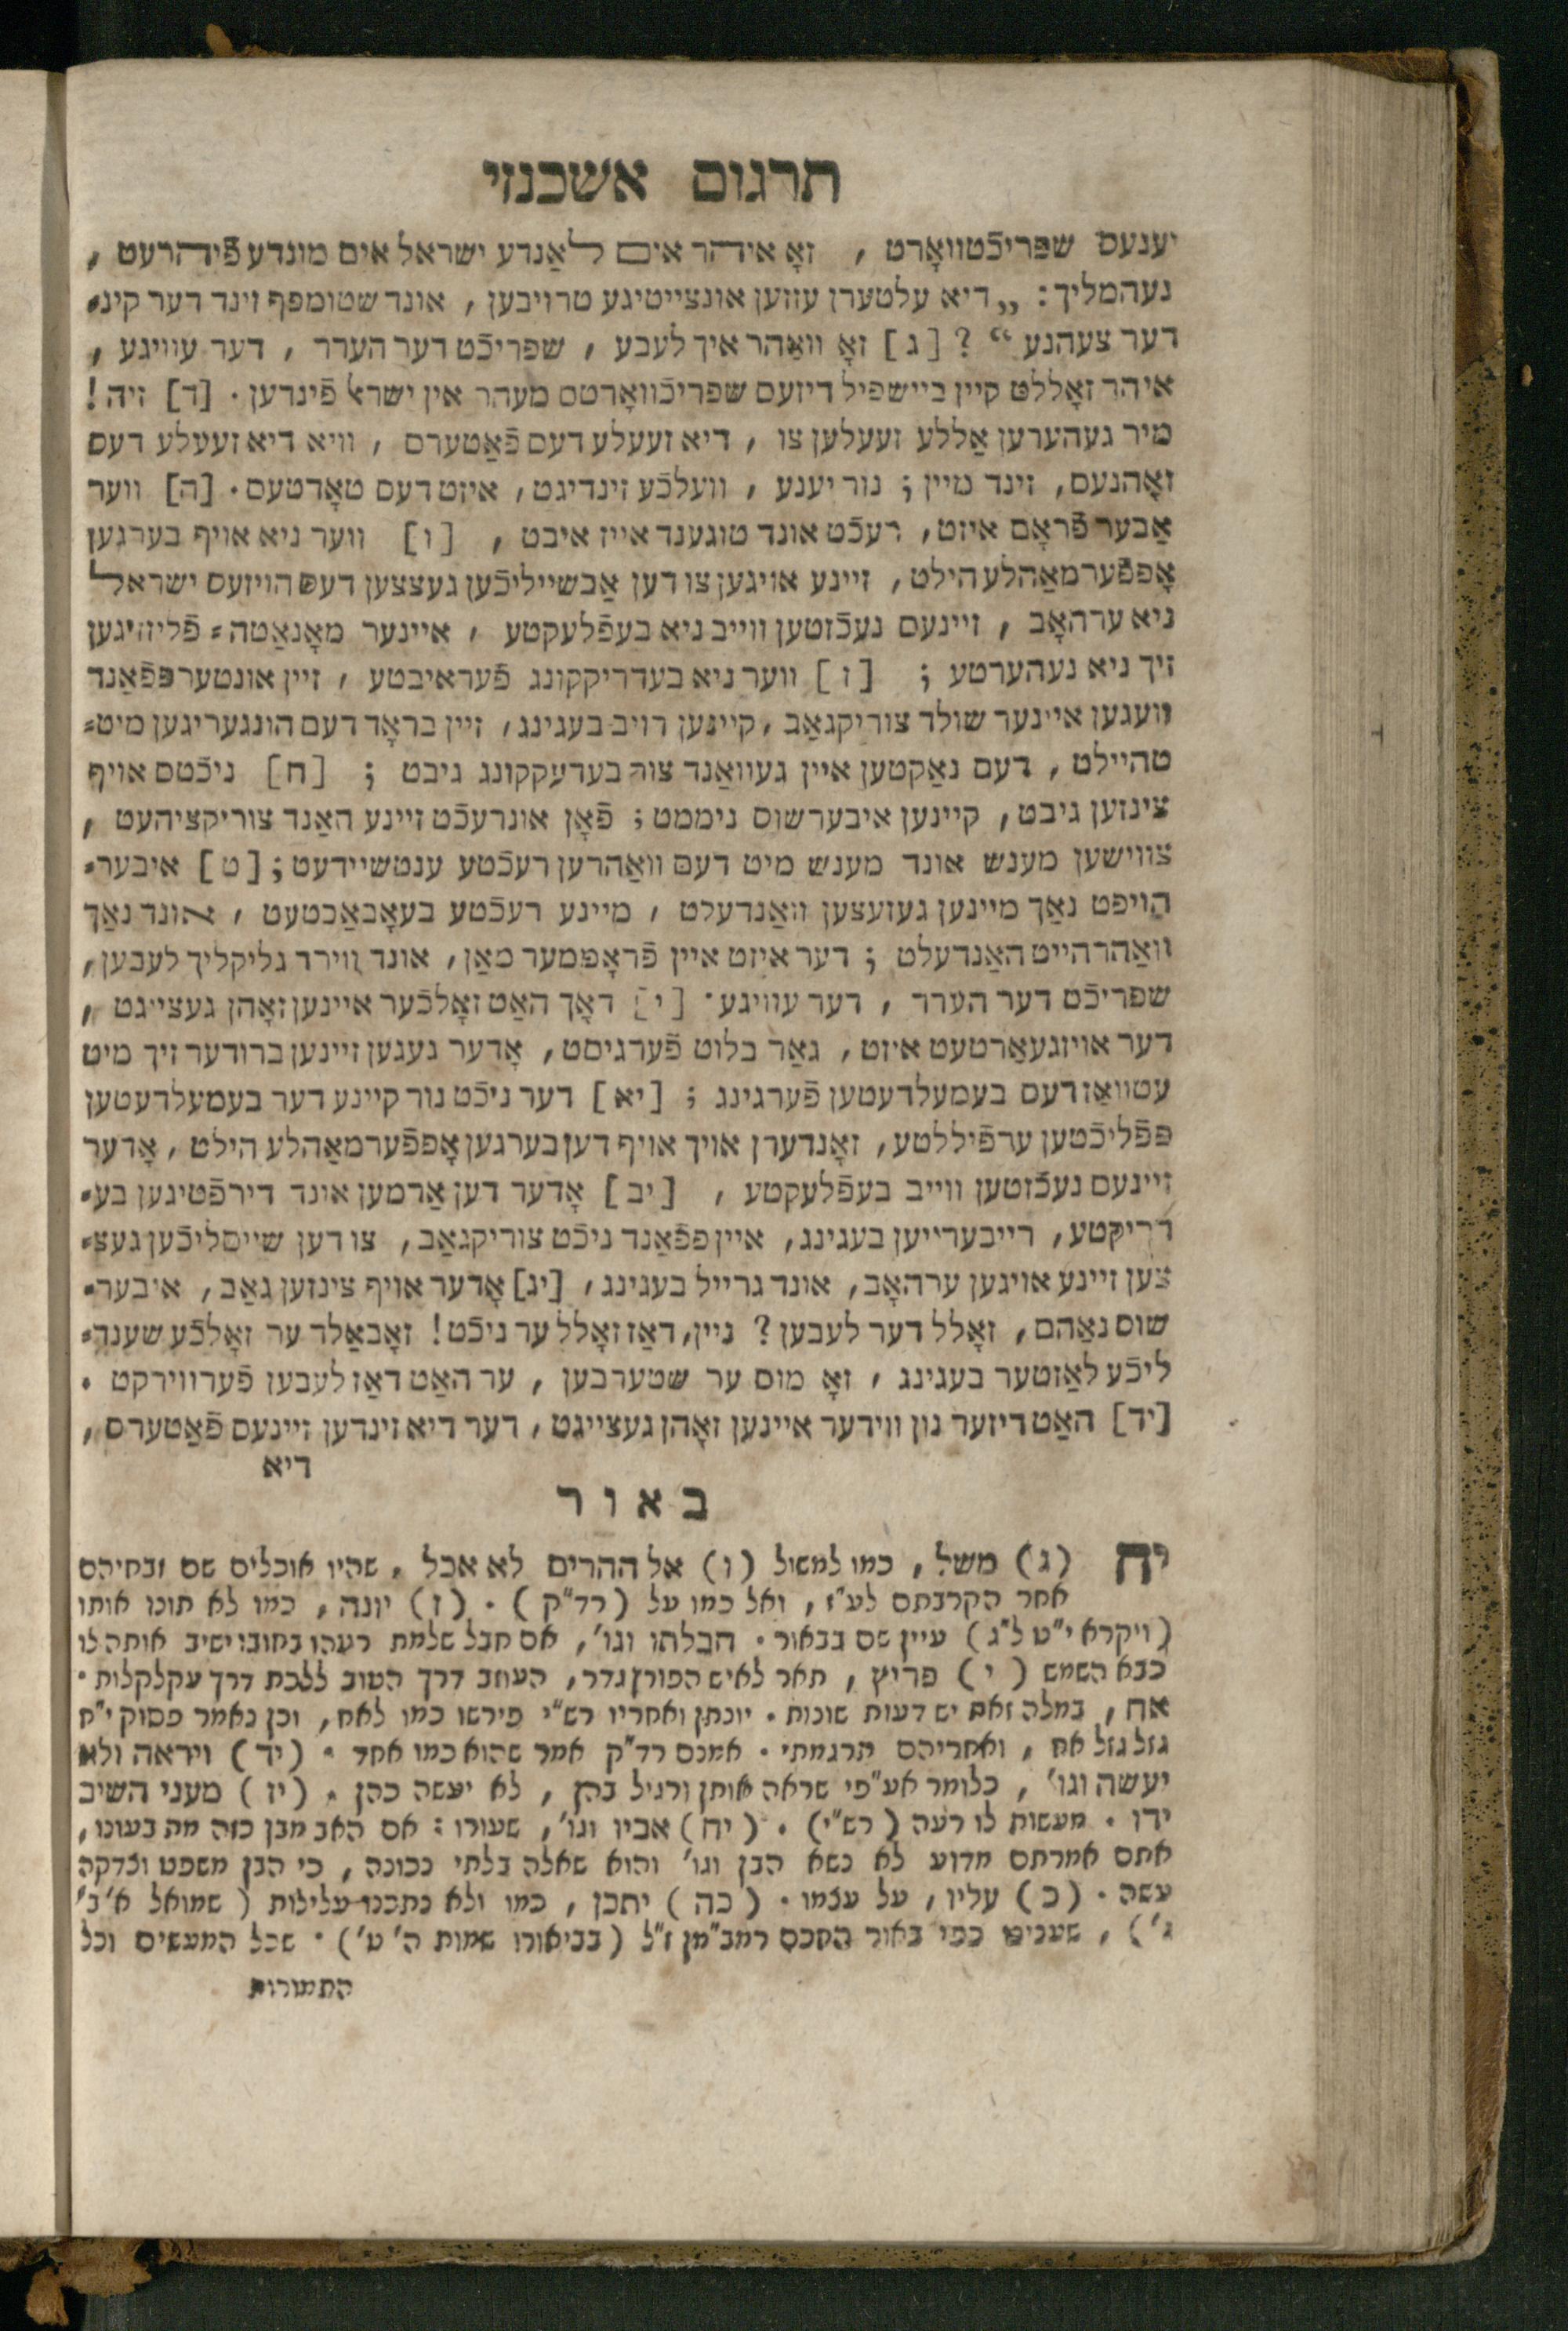 תרגום אשכנזי
יענעס שפריכֿטוואָרט , זאָ איהר אים לאַנדע ישראל אים מונדע פֿיהרעט ,
נעהמליך : „ דיא עלטערן עזזען אונצייטיגע טרויבען , אונד שטומפף זינד דער קינ⸗
דער צעהנע “ ? [ג] זאָ וואַהר איך לעבע , שפריכֿט דער הערר , דער עוויגע ,
איהר זאָללט קיין ביישפיל דיזעס שפריכֿוואָרטס מעהר אין ישראל פֿינדען . [ד] זיה !
מיר געהערען אַללע זעעלען צו , דיא זעעלע דעס פֿאַטערס , וויא דיא זעעלע דעס
זאָהנעס , זינד מיין ; נור יענע , וועלכֿע זינדיגט , איזט דעס טאָדטעס . [ה] ווער
אַבער פֿראָם איזט , רעכֿט אונד טוגענד אייז איבט , [ו] ווער ניא אויף בערגען
אָפפֿערמאַהלע הילט , זיינע אויגען צו דען אַבשייליכֿען געצצען דעס הויזעס ישראל
ניא ערהאָב , זיינעס נעכֿזטען ווייב ניא בעפֿלעקטע , איינער מאָנאַטה⸗ פֿליזיגען
זיך ניא נעהערטע ; [ז] ווער ניא בעדריקקונג פֿעראיבטע , זיין אונטערפפֿאַנד
וועגען איינער שולד צוריקגאַב , קיינען רויב בעגינג , זיין בראָד דעם הונגעריגען מיט⸗
טהיילט , דעם נאַקטען איין געוואַנד צור בעדעקקונג גיבט ; [ח] ניכֿטס אויף
צינזען גיבט , קיינען איבערשוס נימממט ; פֿאָן אונרעכֿט זיינע האַנד צוריקציהעט ,
צווישען מענש אונד מענש מיט דעם וואַהרען רעכֿטע ענטשיידעט ; [ט] איבער⸗
הויפט נאַך מיינען געזעצען וואַנדעלט , מיינע רעכֿטע בעאָבאַכטעט , אונד נאַך
וואַהרהייט האַנדעלט ; דער איזט איין פֿראָממער מאַן , אונד ווירד גליקליך לעבען ,
שפריכֿט דער הערר , דער עוויגע . [י] דאָך האַט זאָלכֿער איינען זאָהן געצייגט ,
דער אויזגעאַרטעט איזט , גאַר בלוט פֿערגיסט , אָדער געגען זיינען ברודער זיך מיט
עטוואַז דעס בעמעלדעטען פֿערגינג ; [יא] דער ניכֿט נור קיינע דער בעמעלדעטען
פפֿליכֿטען ערפֿיללטע , זאָנדערן אויך אויף דען בערגען אָפפֿערמאַהלע הילט , אָדער
זיינעס נעכֿזטען ווייב בעפֿלעקטע , [יב] אָדער דען אַרמען אונד דירפֿטיגען בע⸗
דריקטע , רייבערייען בעגינג , איין פפֿאַנד ניכֿט צוריקגאַב , צו דען שייסליכֿען געצ⸗
צען זיינע אויגען ערהאָב , אונד גרייל בעגינג , [יג] אָדער אויף צינזען גאַב , איבער⸗
שוס נאַהם , זאָלל דער לעבען ? ניין , דאַז זאָלל ער ניכֿט ! זאָבאַלד ער זאָלכֿע שענד⸗
ליכֿע לאַזטער בעגינג , זאָ מוס ער שטערבען , ער האַט דאַז לעבען פֿערווירקט .
[יד] האַט דיזער נון ווידער איינען זאָהן געצייגט , דער דיא זינדען זיינעס פֿאַטערס ,
דיא
באור
יח (ג) משל , כמו למשול (ו) אל ההרים לא אכל , שהיו אוכלים שם זבחיהם
אחר הקרבתם לע"ז , ואל כמו על (רד"ק) . (ז) יונה , כמו לא תונו אותו
(ויקרא י"ט ל"ג) עיין שם בבאור . חבלתו וגו' , אם חבל שלמת רעהו בחובו ישיב אותה לו
כבא השמש (י) פריץ , תאר לאיש הפורץ גדר , העוזב דרך הטוב ללכת דרך עקלקלות .
אח , במלה זאת יש דעות שונות . יונתן ואחריו רש"י פירשו כמו לאח , וכן נאמר פסוק י"ח
גזל גזל אח , ואחריהם תרגמתי . אמנם רד"ק אמר שהוא כמו אחד . (יד) ויראה ולא
יעשה וגו' , כלומר אע"פי שראה אותן ורגיל בהן , לא יעשה כהן . (יז) מעני השיב
ידו . מעשות לו רעה (רש"י) . (יח) אביו וגו' , שעורו : אם האב מבן כזה מת בעונו ,
אתם אמרתם מדוע לא נשא הבן וגו' והוא שאלה בלתי נכונה , כי הבן משפט וצדקה
עשה . (כ) עליו , על עצמו . (כה) יתכן , כמו ולא נתכנו עלילות (שמואל א' ב'
ג') , שענינו כפי באור החכם רמב"מן ז"ל (בביאורו שמות ה' ט') . שכל המעשים וכל
התמורות